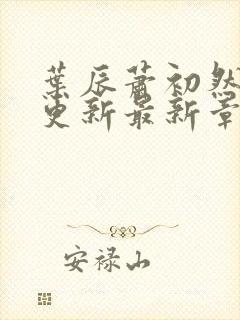 葉辰蕭初然
更新最新章
安禄山